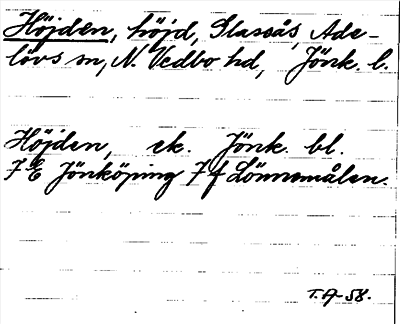 Höjden, höjd, Glassås, Ade-
lövs sn, N. Vedbo hd, Jönk. l.
Höjden, ek. Jönk. bl.
7 E Jönköping 7 f Lönnemålen.
T.A-58.